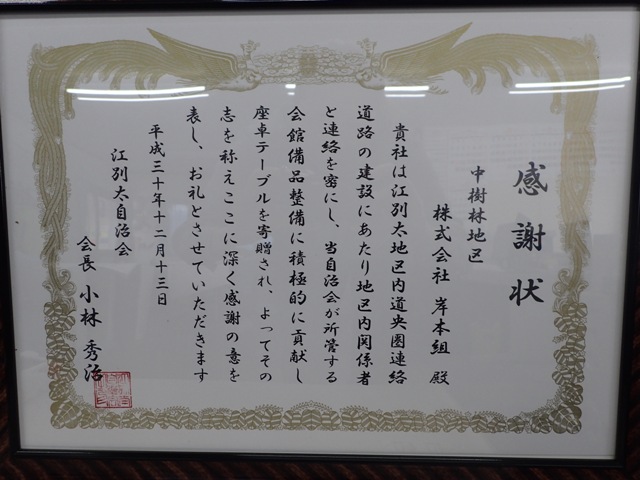 感謝状
中樹林地区
株式会社 岸本組 殿
貴社は江別太地区内道央圏連絡
道路の建設にあたり地区内関係者
と連絡を密にし、当自治会が所管する
会館備品整備に積極的に貢献し
座卓テーブルを寄贈され、よってその
志を称えここに深く感謝の意を
表し、お礼とさせていただきます
平成三十年十二月十三日
江別太自治会
会長 小林 秀治